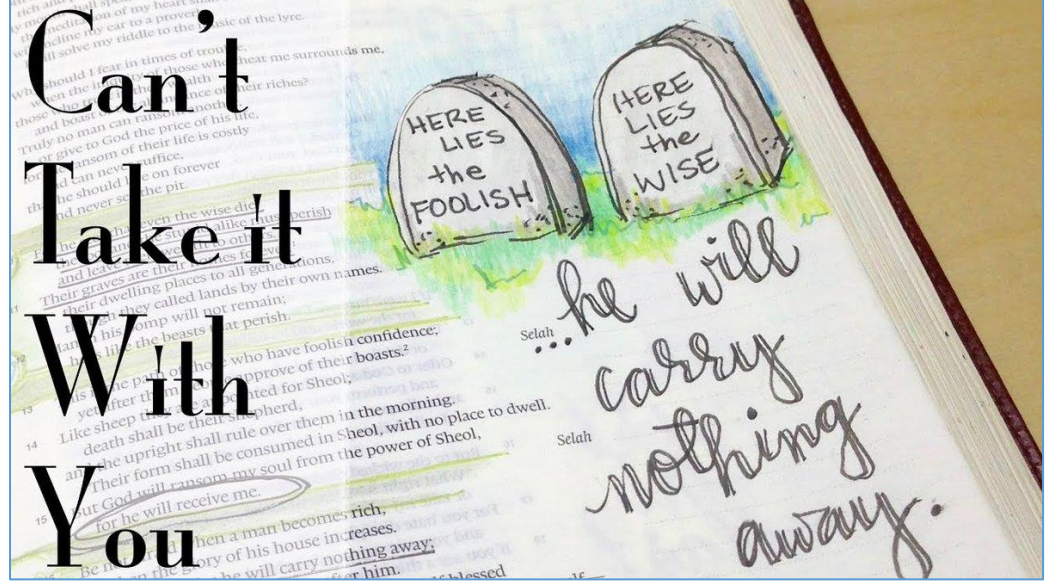 Can't
Take it
With
You
HERE
LIES
the
FOOLISH
HERE
LIES
the
WISE
...he will
carry
nothing
away.
rich and
meditation of my heart
incline my ear to a proverb
solve my riddle to the music of the lyre.
should I fear in times of trouble,
when the of those who cheat me surrounds me,
those who their riches?
and boast of
Truly no man can ransom another,
or give to God the price of his life,
for ransom of their life is costly
and can never suffice,
that he should live on forever
and never see the pit.
even the wise die;
the stupid alike must perish
and leave their wealth to others.
Their graves are their homes forever,
their dwelling places to all generations,
they called lands by their own names.
his pomp will not remain;
he is like the beasts that perish.
13 This is the path of those who have foolish confidence;
yet after them approve of their boasts.² Selah
14 Like sheep they are appointed for Sheol;
death shall be their shepherd,
and the upright shall rule over them in the morning.
Their form shall be consumed in Sheol, with no place to dwell.
15 But God will ransom my soul from the power of Sheol,
for he will receive me. Selah
Be not when a man becomes rich,
when the glory of his house increases.
he will carry nothing away;
after him.
blessed